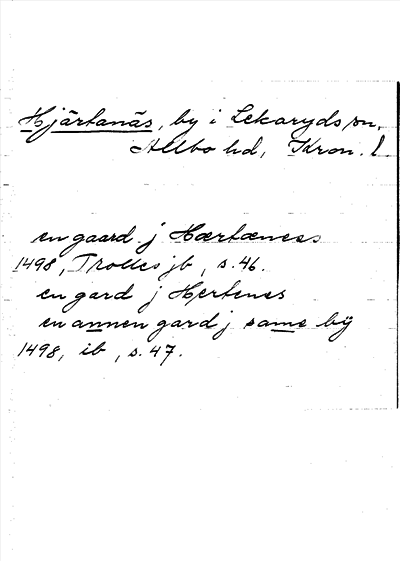 Hjärtanäs, by i Lekaryds sn,
Allbo hd, Kron. l
en gaard j Hærtæness
1498, Trolles jb, s. 46.
en gard j Hertenes
en annen gard j same bÿ
1498, ib, s. 47.